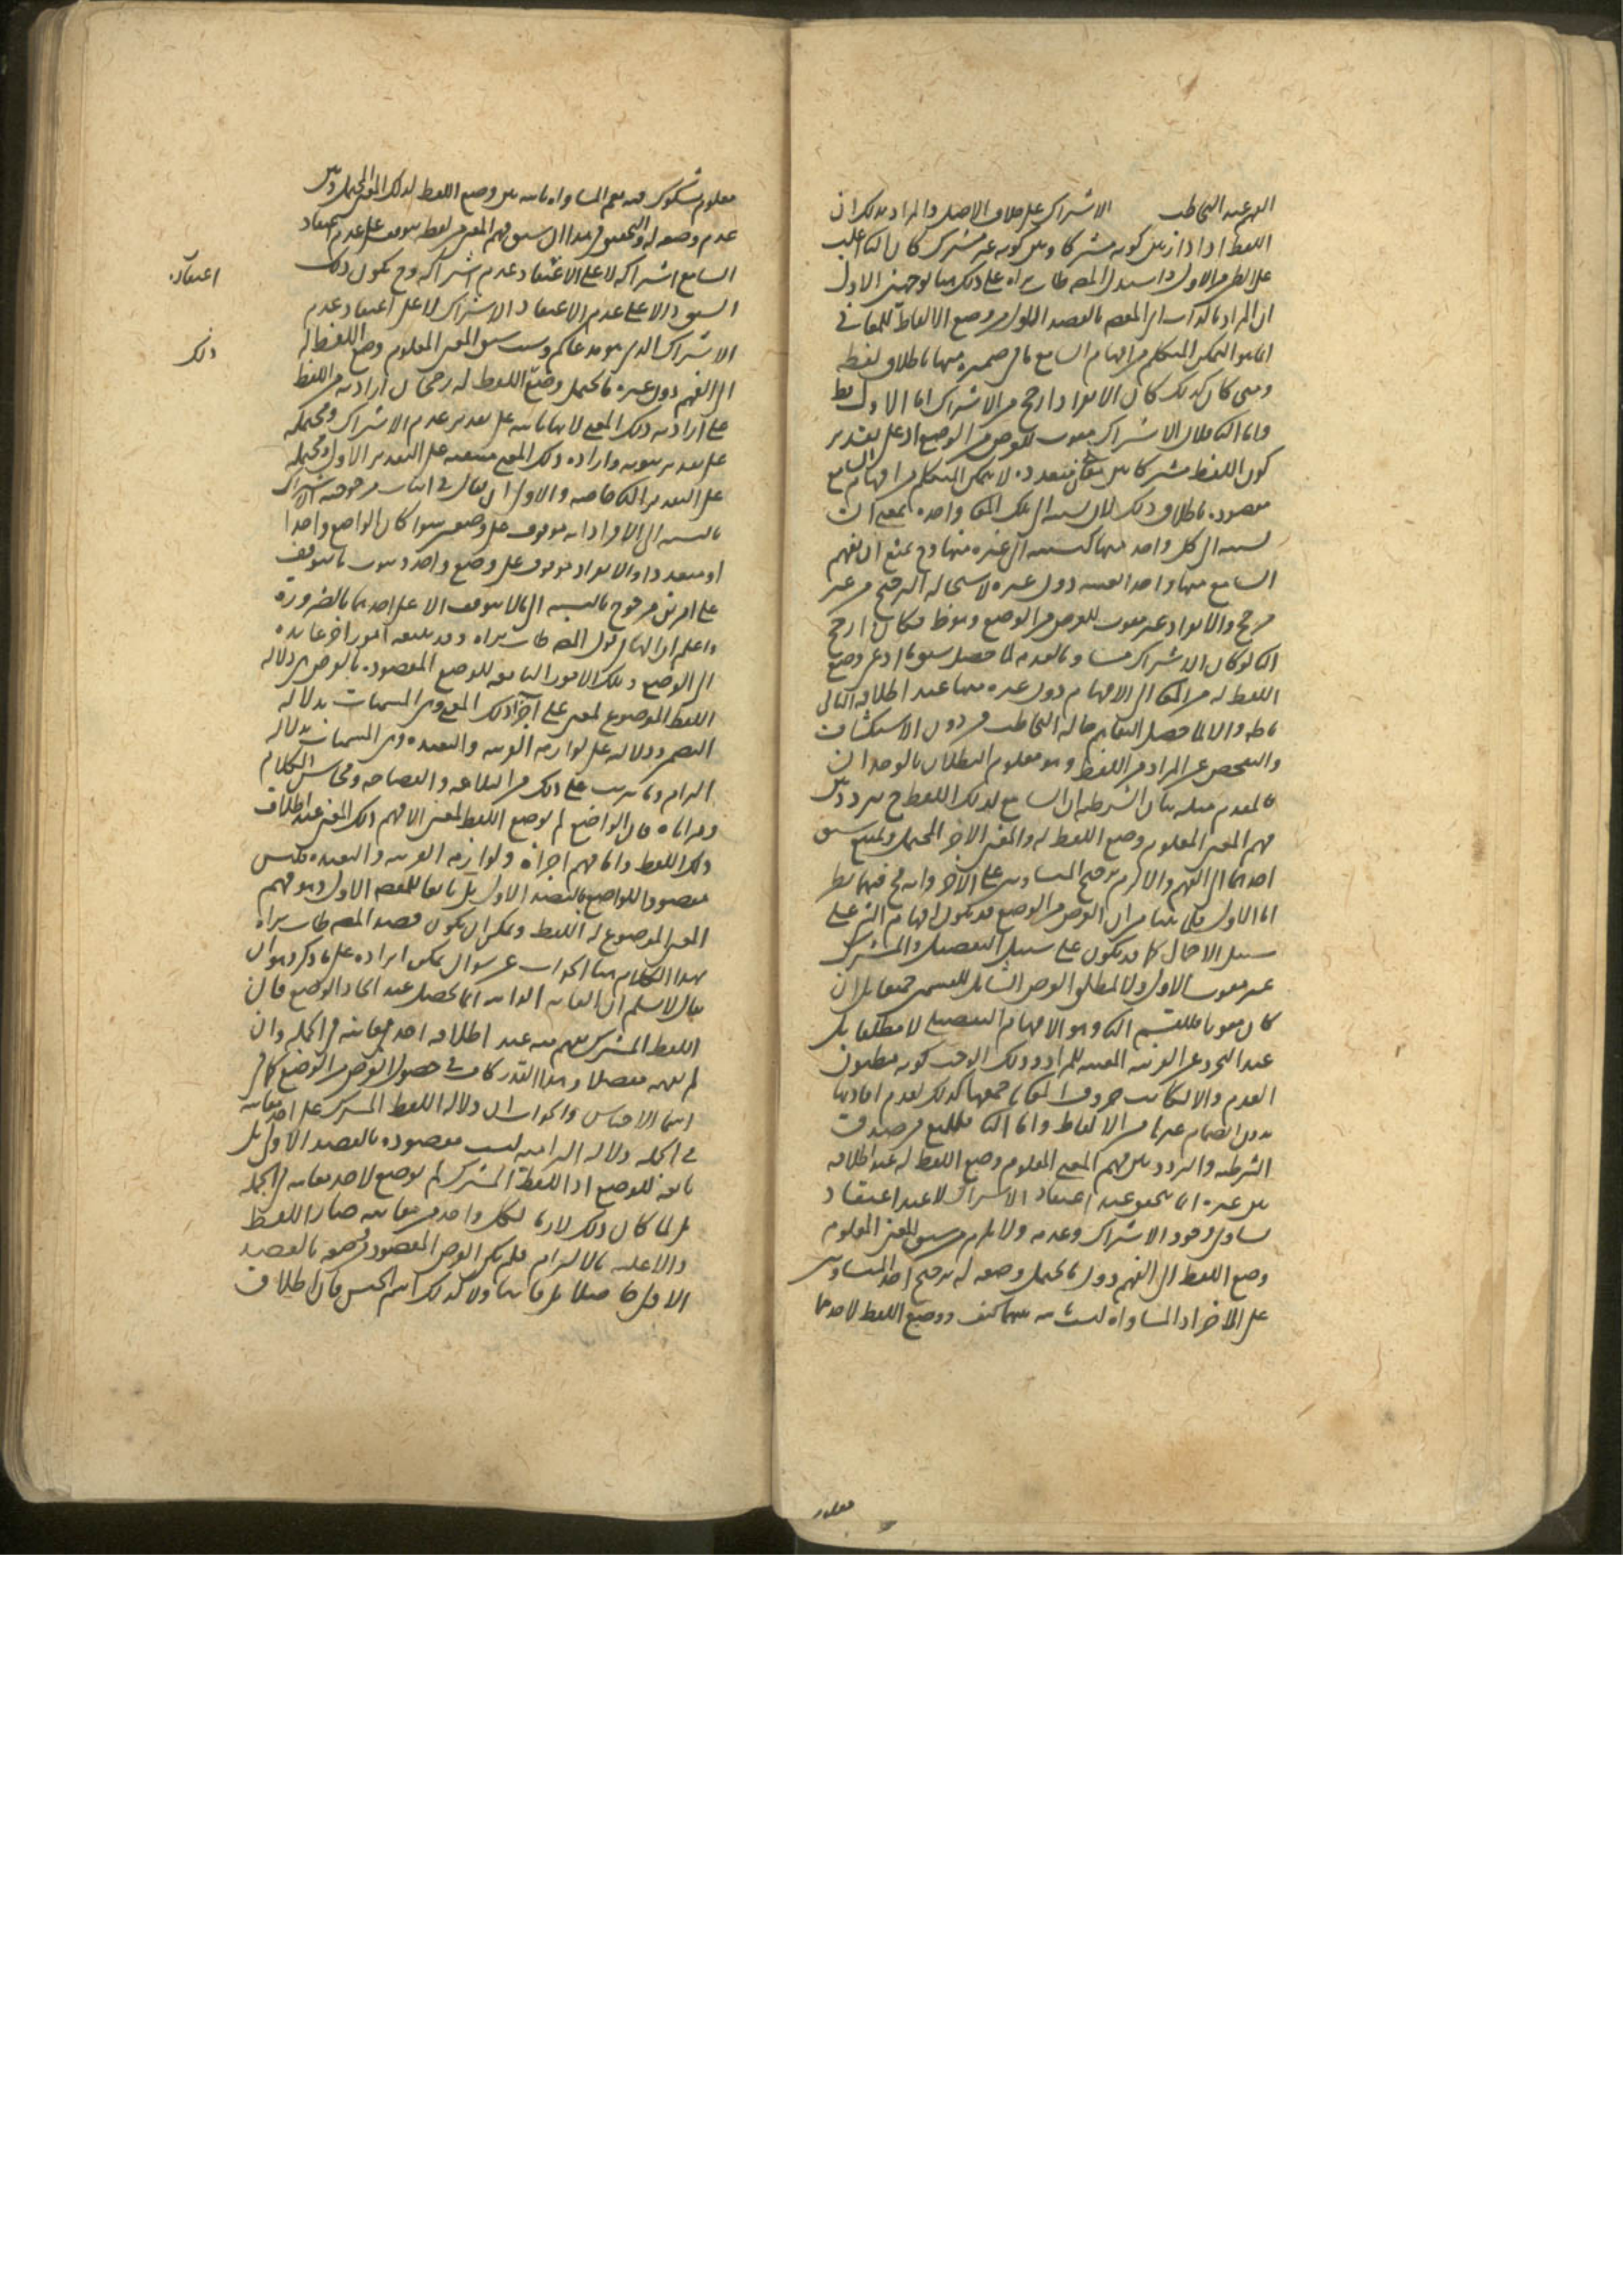 الفهم عند التخاطب الاشتراك على خلاف الاصل والمراد بذلك ان
اللفظ اذا دار بين كونه مشتركا وبين كونه غير مشترك كان الثاني اغلب
على الظن من الاول واستدل المصنف طاب ثراه على ذلك هنا بوجهين الاول
ان المراد بالذات اي المقصد بالقصد الاول من وضع الالفاظ للمعاني
انما هو التمكن المتكلم من افهام السامع ما في ضميره منها باطلاق لفظه
ومتى كان كذلك كان الانفراد ارجح من الاشتراك اما الاول فظ
واما الثاني فلان الاشتراك مفوت للغرض من الوضع اذ على تقدير
كون اللفظ مشتركا بين معان متعددة لا يمكن المتكلم من افهام السامع
مقصوده باطلاق ذلك لان نسبته الى تلك المعاني واحدة بمعنى ان
نسبته الى كل واحد منها كنسبته الى غيره منها وح يمتنع ان يفهم
السامع منها واحدا بعينه دون غيره لاستحالة الترجيح من غير
مرجح والانفراد غير مفوت للغرض من الوضع وهو ظ فكان ارجح
الثاني لو كان الاشتراك مساويا لعدمه لما حصل سبق ما ادعى وضع
اللفظ له من المعاني الى الافهام دون غيره منها عند اطلاقه التالي
باطل والا لما حصل التفاهم حالة التخاطب من دون الاستكشاف
والتفحص عن المراد من اللفظ وهو معلوم البطلان بالوجدان
فالمقدم مثله بيان الشرطية ان السامع لذلك اللفظ ح يتردد بين
فهم المعنى المعلوم وضع اللفظ له والمعنى الاخر المحتمل ويمتنع سبق
احدهما الى الفهم والا لزم ترجيح المتساويين على الاخر وانه مح فيهما نظر
اما الاول فلما بينا من ان الغرض من الوضع قد يكون افهام الشئ على
سبيل الاجمال كما قد يكون على سبيل التفصيل والمشترك
غير مفوت للاول ولا لمطلق الغرض الشامل للقسمين جميعا بل ان
كان مفوتا فللقسم الثاني وهو الافهام التفصيلي لا مطلقا بل
عند التجرد عن القرينة المعينة للمراد وذلك لا يوجب كونه مظنون
العدم والا لكانت حروف المعاني جميعها كذلك لعدم افادتها
بدون انضمام غيرها من الالفاظ واما الثاني فللمنع من صدق
الشرطية والتردد بين فهم المعنى المعلوم وضع اللفظ له عند اطلاقه
بين غيره انما يتحقق عند اعتقاد الاشتراك لا عند اعتقاد
تساوي وجود الاشتراك وعدمه ولا يلزم من سبق المعنى المعلوم
وضع اللفظ الى الفهم دون ما يحتمل وضعه له ترجيح احد المتساويين
على الاخر اذ المساواة ليست ثابتة بينهما كيف ووضع اللفظ لاحدهما
معلوم
معلوم مشكوك فيه نعم المساواة ثابتة بين وضع اللفظ لذلك المعنى المحتمل وبين
عدم وضعه له والتحقيق في هذا ان سبق فهم المعنى من لفظه يتوقف على عدم اعتقاد
السامع اشتراكه لا على الاعتقاد عدم اشتراكه وح يكون ذلك
السبق دالا على عدم الاعتقاد الاشتراك لا على اعتقاد عدم
الاشتراك الذي هو مدعاكم وسبب سبق المعنى المعلوم وضع اللفظ له
الى الفهم دون غيره ما يحتمل وضع اللفظ له رجحان ارادته من اللفظ
على ارادته ذلك المعنى لانها ثابتة على تقدير عدم الاشتراك ومحتملة
على تقدير ثبوته وارادة ذلك المعنى منتفية على التقدير الاول ومحتملة
على التقدير الثاني خاصة والاولى ان يقال في اثبات مرجوحية الاشتراك
بالنسبة الى الانفراد انه موقوف على وضعين سواء كان الواضع واحدا
او متعددا والانفراد موقوف على وضع واحد وثبوت ما يتوقف
على امرين مرجوح بالنسبة الى ما لا يتوقف الا على احدهما بالضرورة
واعلم ان لهذا قول المصنف طاب ثراه وقد يتبعه امور اخر عائدة
الى الوضع وتلك الامور التابعة للوضع المقصودة بالعرض هي دلالة
اللفظ الموضوع لمعنى على اجزاء ذلك المعنى وهي المسماة بدلالة
التضمن ودلالته على لوازمه القريبة والبعيدة وهي المسماة بدلالة
التزام وما يترتب على ذلك من البلاغة والفصاحة ومحاسن الكلام
ومزاياه فان الواضع لم يوضع اللفظ لمعنى الا لفهم ذلك المعنى عند اطلاق
ذلك اللفظ واما فهم اجزائه ولوازمه القريبة والبعيدة فليس
مقصودا للواضع بالقصد الاول بل تابعا للقصد الاول وهو فهم
المعنى الموضوع له اللفظ ويمكن ان يكون قصد المصنف طاب ثراه
بهذا الكلام هنا الجواب عن سؤال يمكن ايراده على ما ذكر وهو ان
يقال لا نسلم ان الغاية الذاتية انما تحصل عند اتحاد الوضع فان
اللفظ المشترك يفهم منه عند اطلاقه احد معانيه في الجملة وان
لم يفهمه مفصلا وهذا القدر كاف في حصول الغرض من الوضع كما في
اسماء الاجناس والجواب ان دلالة اللفظ المشترك على احد معانيه
في الجملة دلالة التزامية ليست مقصودة بالقصد الاول بل
تابعة للوضع اذ اللفظ المشترك لم يوضع لاحد معانيه في الجملة
بل لما كان ذلك لازما لكل واحد من معانيه صار اللفظ
دالا عليه بالالتزام فلم يكن الغرض المقصود من وضعه بالقصد
الاول حاصلا بل فائتا ولا كذلك اسم الجنس فان اطلاق
اعتقاد
ذلك